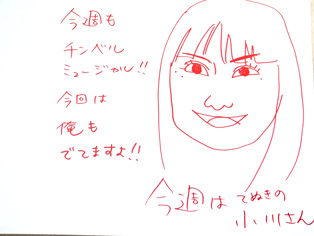 今週も
チンベル
ミュージカル!!
今回は
俺も
でてますよ!!
今週は てぬきの
小川さん